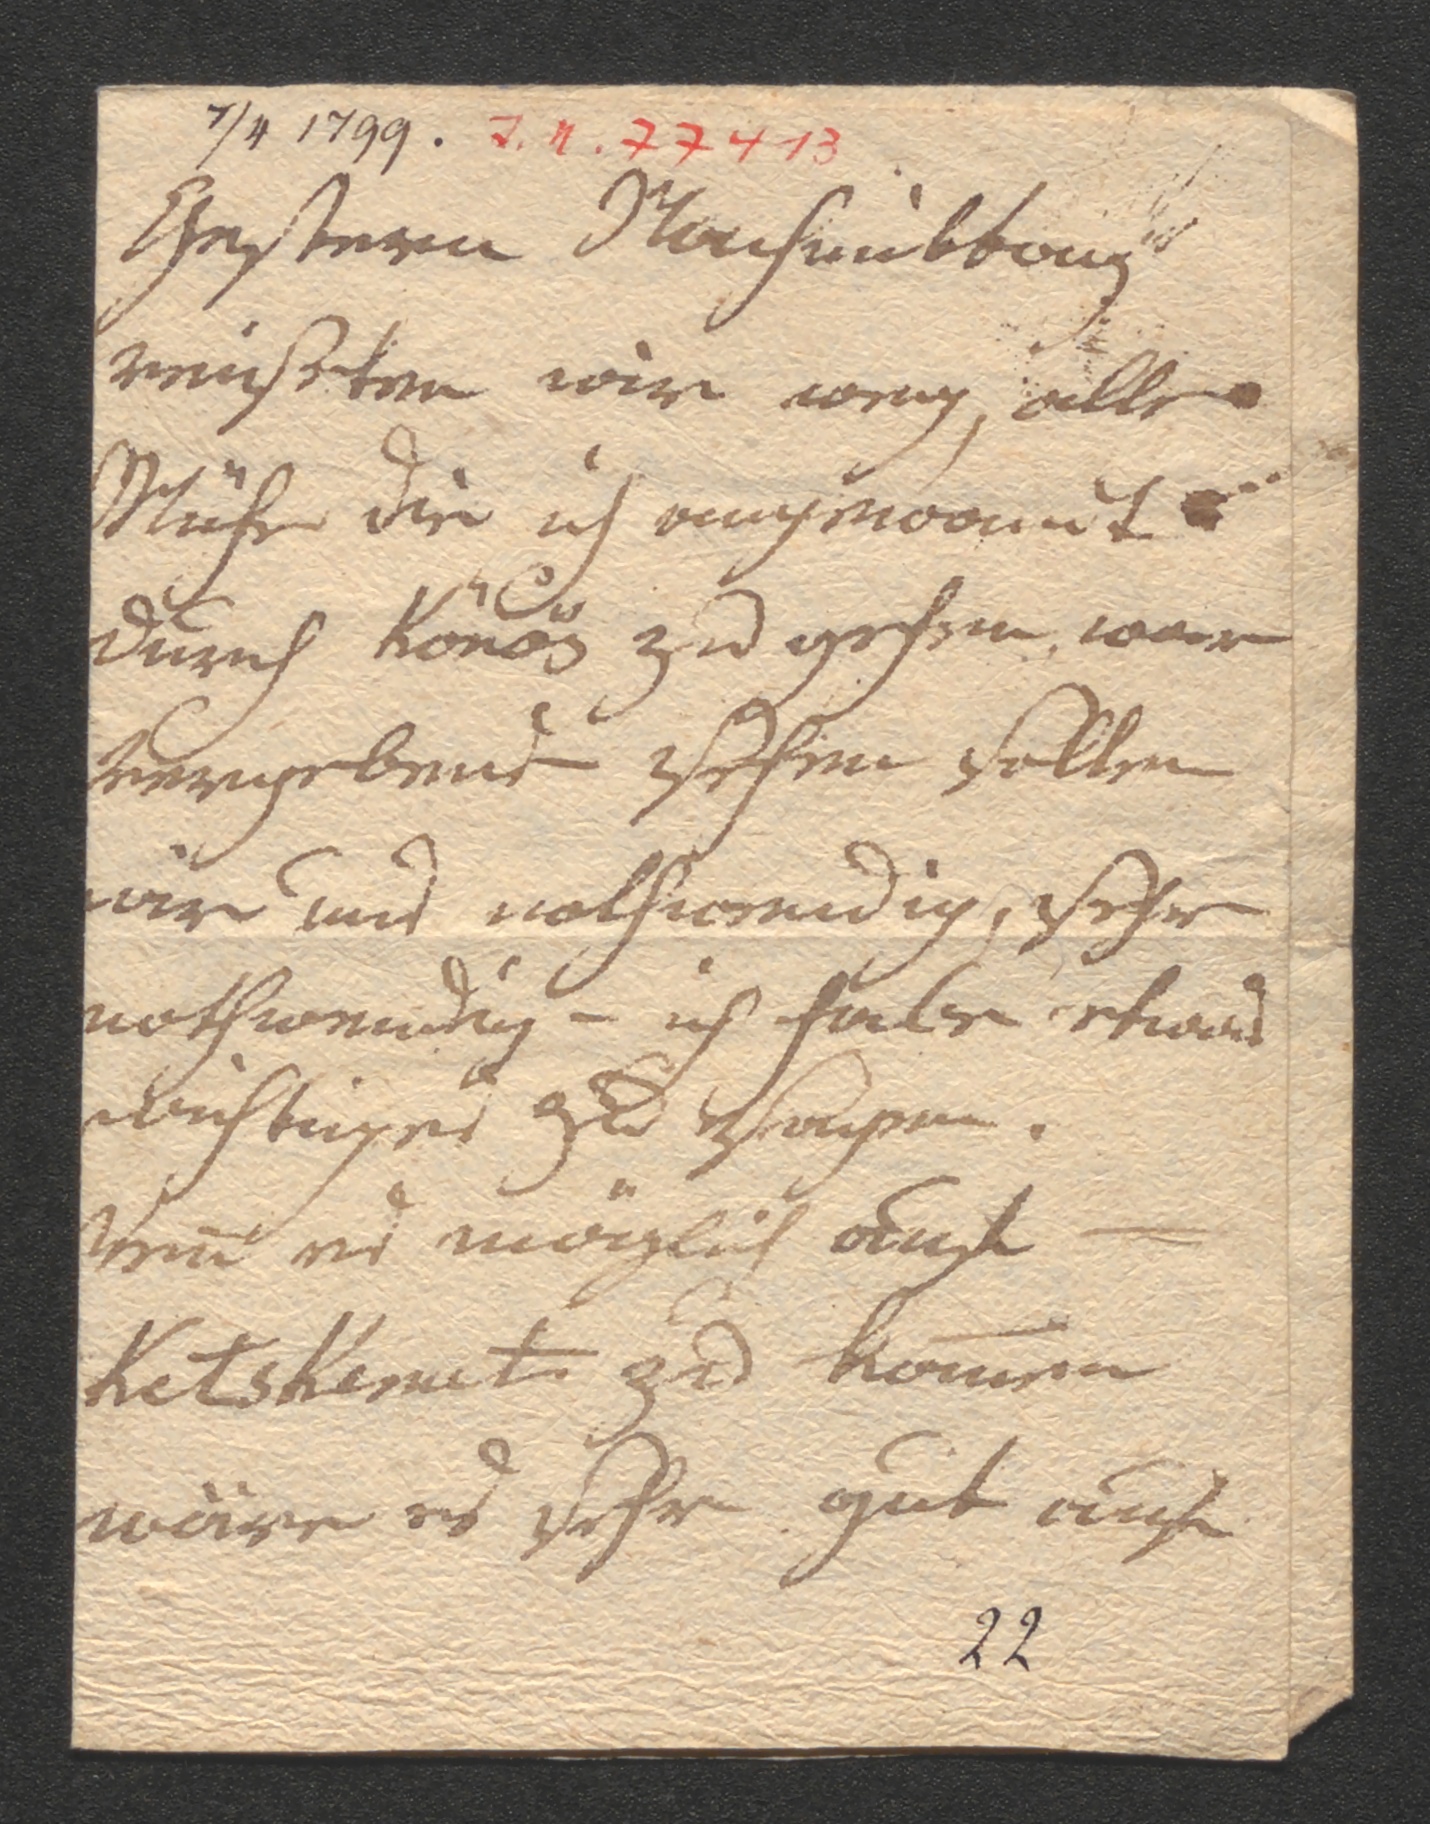 7/4 1799. J.N. 77413
Gestern Nachmittag
reisten wir weg, alle
Mühe die ich angewant
durch Körös zu gehen, war
vergebens sehen sollen
wir uns nothwendig, sehr
nothwendig – ich habe etwas
wichtiges zu sagen.
Wen̄ es möglich auch –
Ketskemet zu kom̄en
wäre es sehr gut auch
22